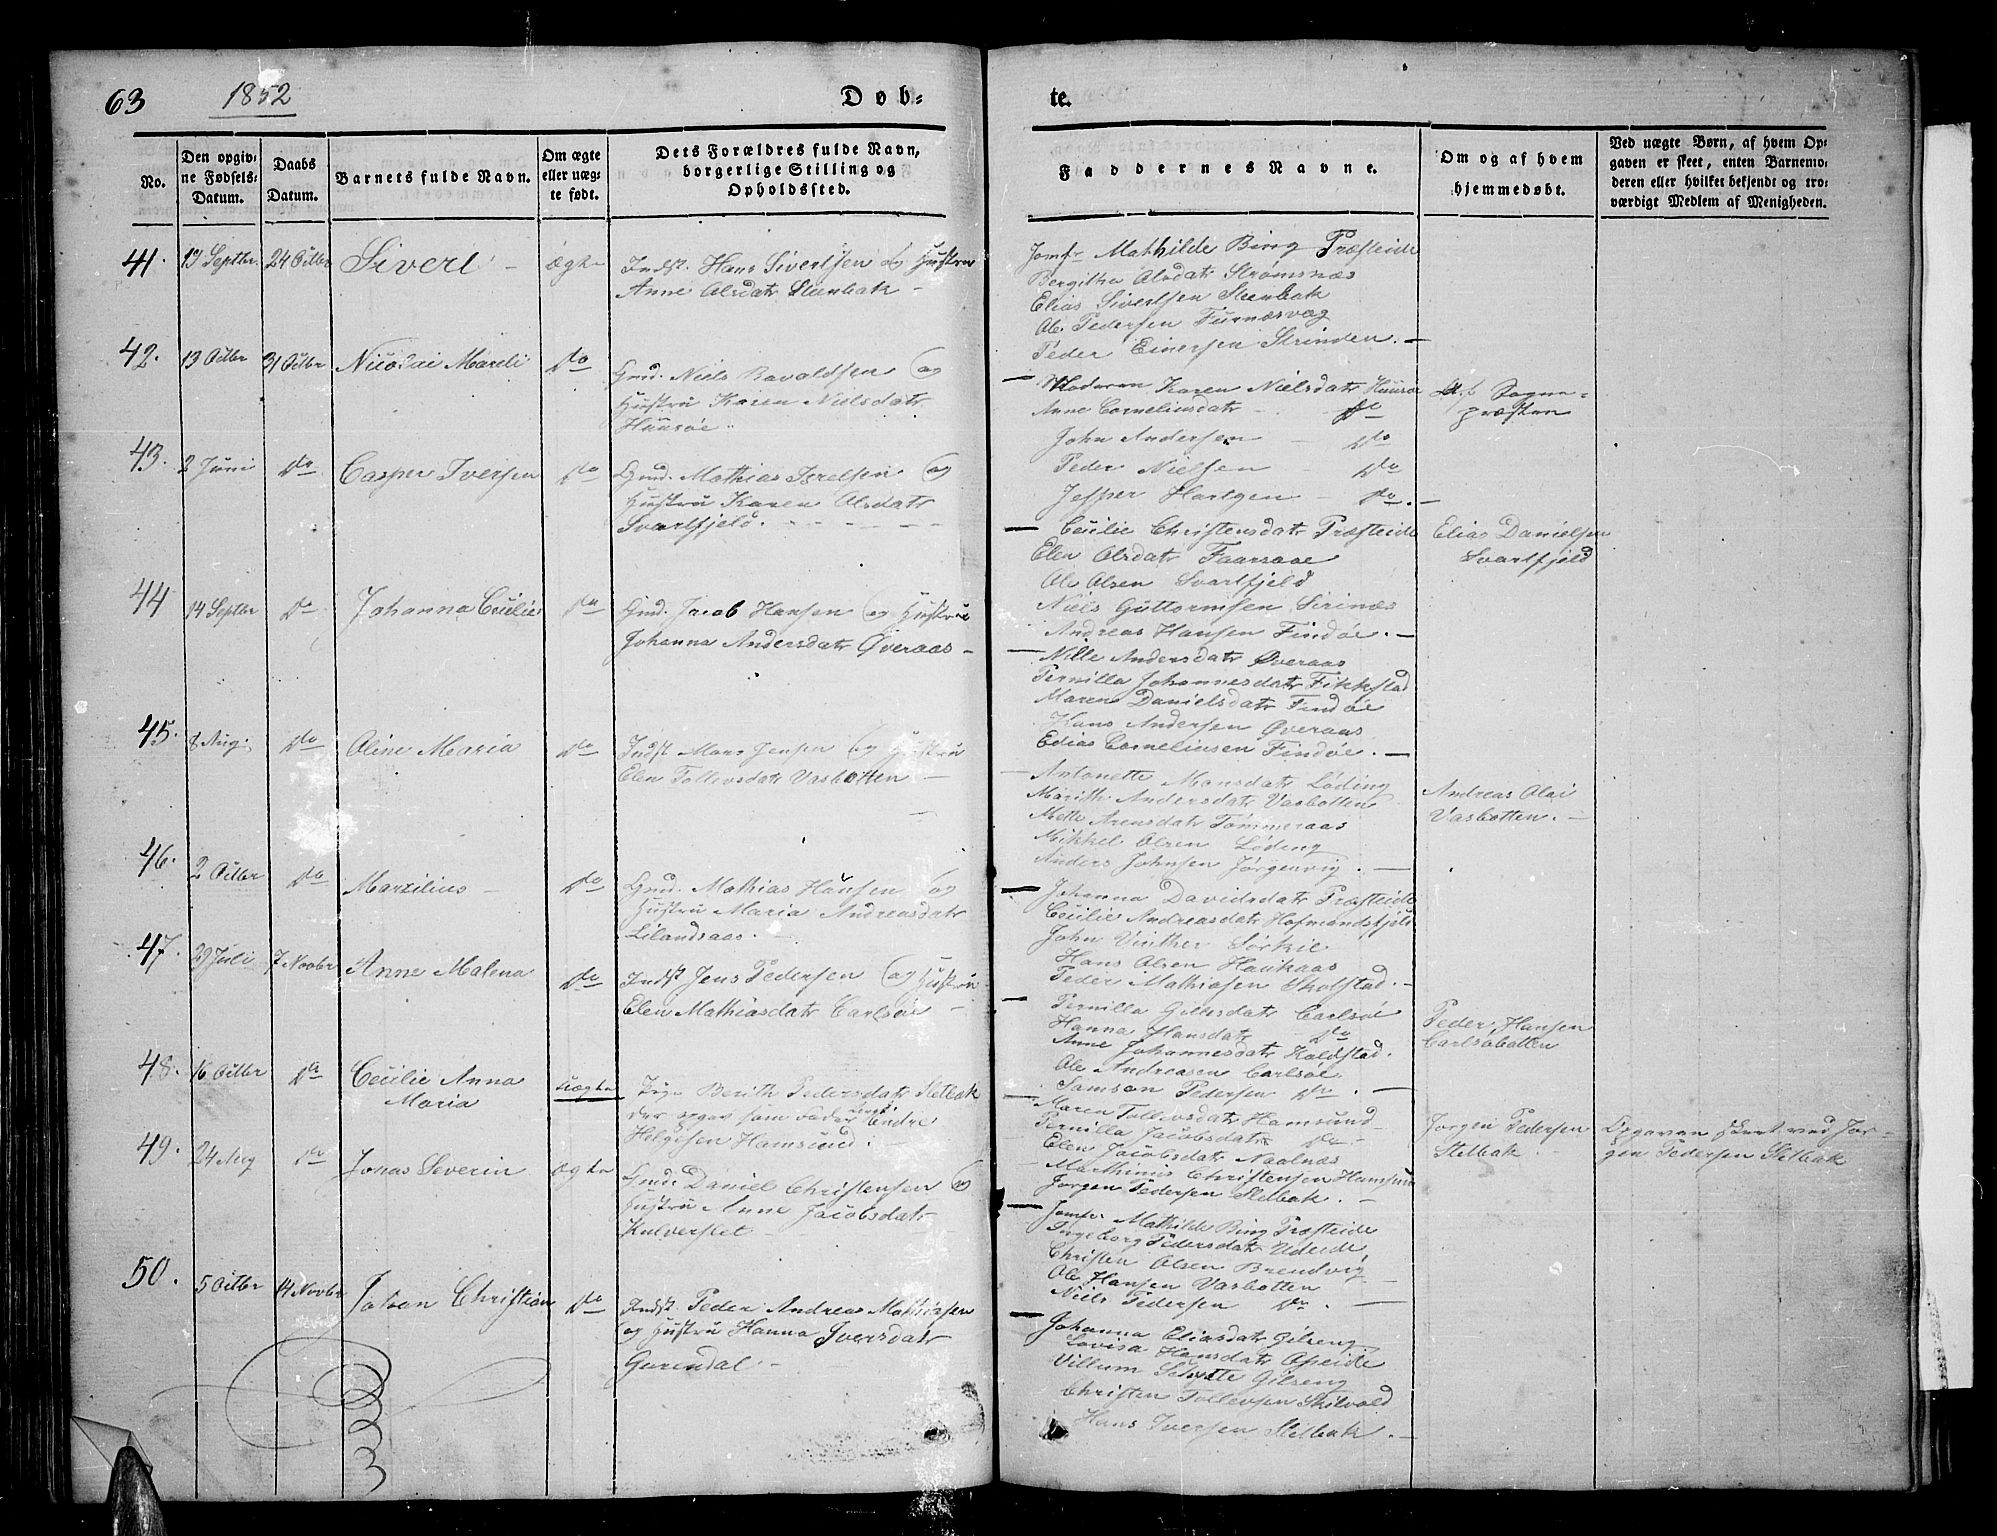 63 1852 Døb- te.
No.
Den opgiv-
ne Fødsels-
Datum.
Daabs
Datum.
Barnets fulde Navn.
Om ægte
eller uæg-
te født.
Dets Forældres fulde Navn,
borgerlige Stilling og
Opholdssted.
Faddernes Navne.
Om og af hvem
hjemmedøbt.
Ved uægte Børn, af hvem Op-
gaven er skeet, enten Barnemo-
deren eller hvilket bekjendt og tro-
værdigt Medlem af Menigheden.
41. 19 Septbr. 24 Octbr Sivert - ægte
Indst. Hans Sivertsen & Hustru
Anne Olsdatr Steenbak -
Jomfr Mathilde Bing Præsteide
Bergitha Olsdatr Strømsnæs
Elias Sivertsen Steenbak
Ole Pedersen Furnæsvæg
Peder Einersen Strinden. -
42. 13 Octbr 31 Octbr Nicolai Mareli do
Gmd. Niels Bavaldsen og
Hustru Karen Nielsdatr
Huusøe
- Moderen Karen Nielsdatr Huusøe
Anne Corneliusdatr - do
John Andersen - do
Peder Nielsen - do
Jesper Hartgen - do. -
Af Sogne-
præsten
43. 2 Juni do Casper Iversen do
Gmd. Mathias Isrelsen og
Hustru Karen Olsdatr
Svartfjeld.
- Cecilie Christensdatr Præsteide
Elen Olsdatr Faarøe
Ole Olsen Svartfjeld
Niels Guttormsen Sirinæs
Andreas Hansen Findøe. -
Elias Danielsen
Svartfjeld
44 14 Septbr do Johanna Cecilie do
Gmd. Jacob Hansen og Hustrue
Johanna Andersdatr Øveraas -
- Nille Andersdatr Øveraas
Pernilla Johannesdatr Fikkstad
Maren Danielsdatr Findøe
Hans Andersen Øveraas
Edias Corneliusen Findøe. -
45. 8 Aug. do Aline Maria do
Indst Mons Jensen og Hustru
Elen Tollevsdatr Vasbotten -
- Antonette Monsdatr Løding
Marith Andersdatr Vasbotten
Mette Arensdatr Tømmeraas
Mikkel Olsen Løding
Anders Johnsen Jørgenvig. -
Andreas Olai
Vasbotten. -
46. 2 Octbr do Marzilius - do
Gmd. Mathias Hansen og
Hustru Maria Andreasdatr
Lilandsaas. -
- Johanna Davidsdatr Præsteide
Cecilie Andreasdatr Hofmandsfjeld
John Vinther Sørkil
Hans Olsen Haukaas
Peder Mathiasen Skolstad. -
47. 29 Juli 7 Novbr Anne Malena do
Indst Jens Pedersen og Hustru
Elen Mathiasdatr Carlsøe -
- Pernilla Gittesdatr Carlsøe
Hanna Hansdatr do
Anne Johannesdatr Koldstad.
Ole Andreasen Carlsøe
Samson Pedersen do. -
Peder Hansen
Carlsøbotten
48. 16 Octbr do Cecilie Anna
Maria
uægte
Pige Berith Pedersdatr Stelbak
der opgav som Fader Endre
Helgesen Hamsund. -
- Maren Tollevsdatr Hamsund -
Pernilla Jacobsdatr do -
Elen Jacobsdatr Naalnæs
Marthinus Christensen Hamsund
Jørgen Pedersen Stelbak. -
Jørgen Pedersen
Stelbak.
Opgaven skeet ved Jør-
gen Pedersen Stelbak
49. 24 Aug do Jonas Severin ægte
Gmd. Daniel Christensen og
Hustru Anne Jacobsdatr
Kalverslet -
- Jomfr Mathilde Bing Præsteide
Ingeborg Pedersdatr Uteide
Christen Olsen Brendvig
Ole Hansen Vasbotten
Niels Pedersen do. -
50. 5 Octbr 14 Novbr Johan Christian do
Indst. Peder Andreas Mathiasen
og Hustru Hanna Iversdatr
Gurendal -
- Johanna Eliasdatr Gilseng
Lovisa Hansdatr Opeide
Villum Selgste Gilseng
Christen Tollevsen Skilvold
Hans Iversen Stelbak. -